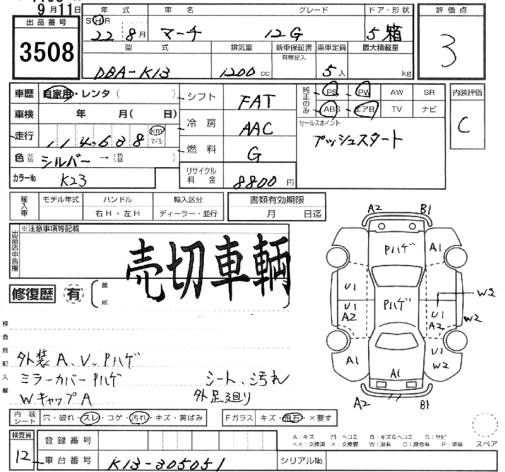 9月11日
出品番号
3508
年式 車名 グレード ドア・形状 評価点
S H R
22年 8月 マーチ 12G 5 箱 3
型式 排気量 新車保証書 乗車定員 最大積載量
有無記入
DBA-K13 1200cc 5人 kg
車歴 自家用・レンタ( ) シフト FAT 純正のみ PS PW AW SR 内装評価
ABS エアB TV ナビ C
車検 年 月( ) 冷房 AAC セールスポイント
走行 114,638 km マイル プッシュスタート
燃料 G
色 シルバー→(
カラーNo K23 リサイクル料金 8800円
輸入車 モデル年式 ハンドル 輸入区分 書類有効期限
右H・左H ディーラー・並行 月 日迄
出品店申告欄 ※注意事項等記載
売切車輌
修復歴 有 箇所
検査員記入欄
外装A、V、Pハゲ
ミラーカバーPハゲ シート、汚れ
WキャップA 外足廻り
A2 B1
Pハゲ A1
U1 U1 W2
A2 Pハゲ U1 A2 W2
A1 U1 W2
A1
A2 B1
内装シート 穴・破れ・スレ・コゲ・汚れ・キズ・黄ばみ Fガラス キズ・飛石・×要す
スペア
検査員 登録番号
12 車台番号 K13-305051 シリアルNo